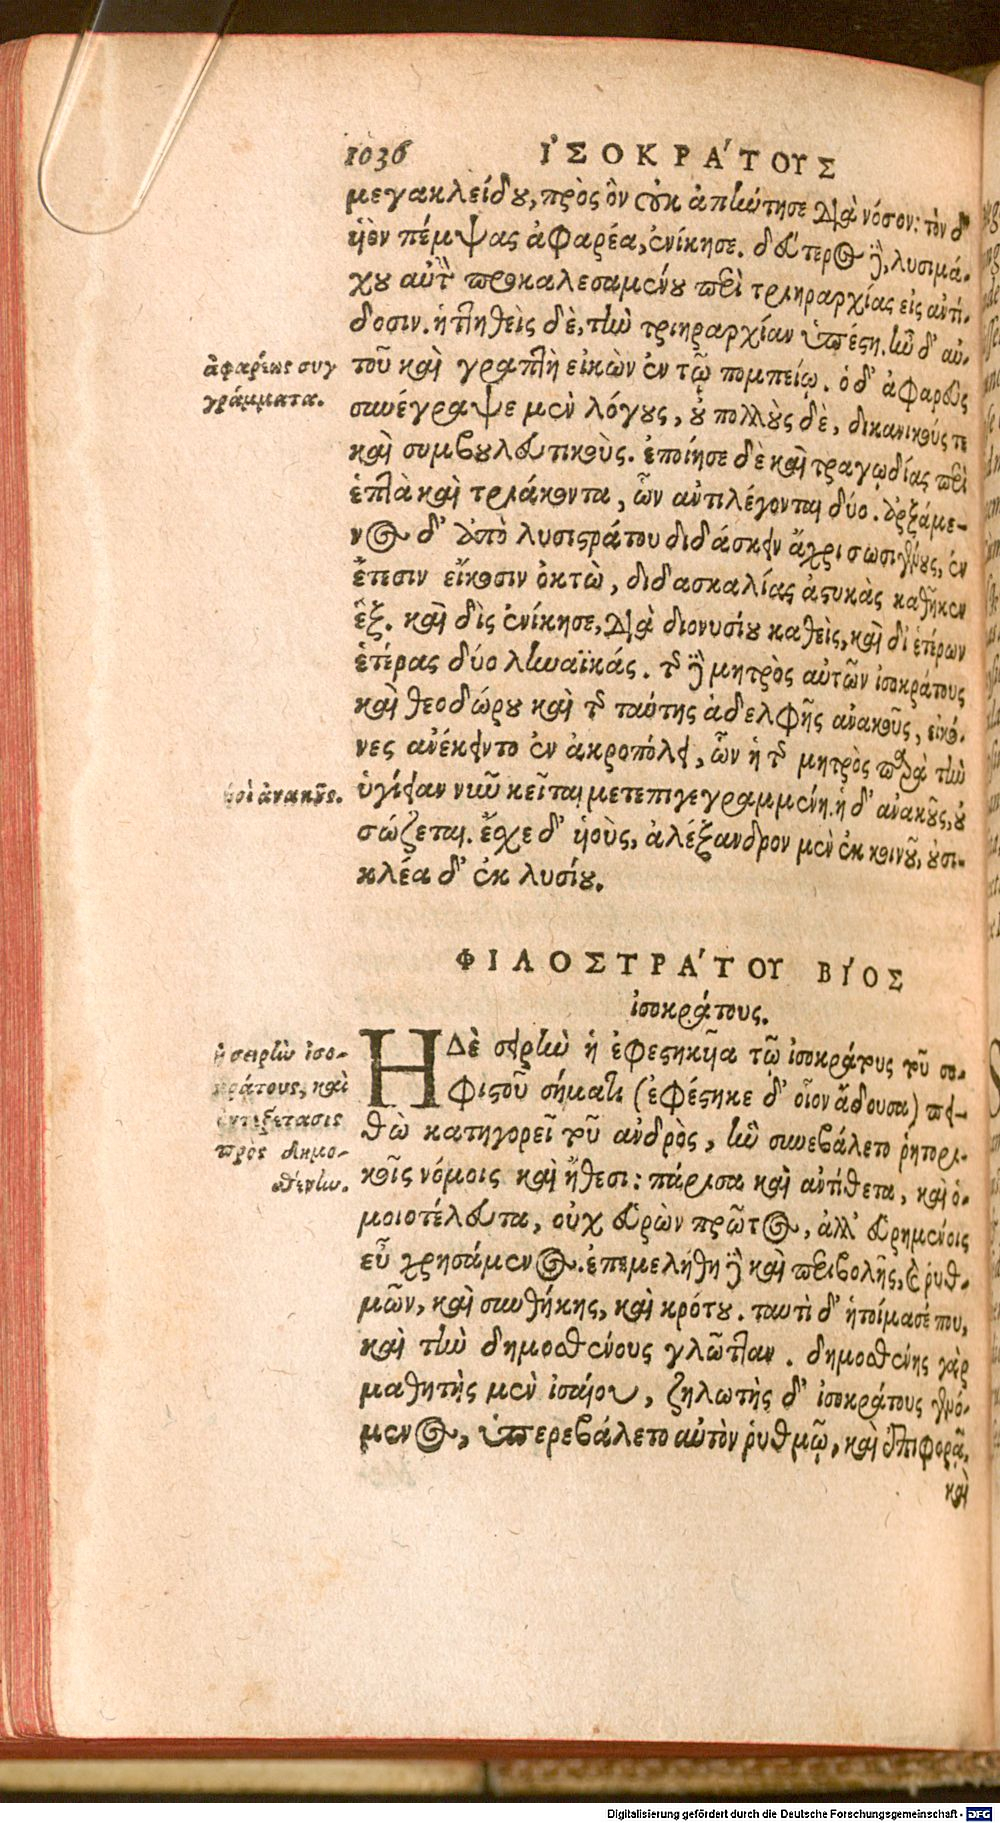 1036 ἸΣΟΚΡΆΤΟΥΣ
μεγακλείδου, πρὸς ὃν οὐκ ἀπήντησε διὰ νόσον: τὸν δ'
υἱὸν πέμψας ἀφαρέα, ἐνίκησε. δεύτερος δὲ, λυσιμά-
χου αὐτὸν προκαλεσαμένου περὶ τριηραρχίας εἰς ἀντί-
δοσιν. ἡττηθεὶς δὲ, τὴν τριηραρχίαν ὑπέστη. ἦν δ' αὐ-
τοῦ καὶ γραπτὴ εἰκὼν ἐν τῷ πομπείῳ. ὁ δ' ἀφαρεὺς
συνέγραψε μὲν λόγους, οὐ πολλοὺς δὲ, δικανικούς τε
καὶ συμβουλευτικοὺς. ἐποίησε δὲ καὶ τραγῳδίας περὶ
ἑπτὰ καὶ τριάκοντα, ὧν ἀντιλέγονται δύο. ἀρξάμε-
νος δ' ἀπὸ λυσιστράτου διδάσκειν ἄχρι σωσιγένους, ἐν
ἔτεσιν εἴκοσιν ὀκτὼ, διδασκαλίας ἀστυκὰς καθῆκεν
ἓξ. καὶ δὶς ἐνίκησε, διὰ διονυσίου καθεὶς, καὶ δι' ἑτέρων
ἑτέρας δύο ληναϊκάς. τῆς δὲ μητρὸς αὐτῶν ἰσοκράτους
καὶ θεοδώρου καὶ τῆς ταύτης ἀδελφῆς ἀνακοῦς, εἰκό-
νες ἀνέκειντο ἐν ἀκροπόλει, ὧν ἡ τῆς μητρὸς παρὰ τὴν
ὑγίειαν νῦν κεῖται μετεπιγεγραμμένη. ἡ δ' ἀνακοῦς, οὐ
σώζεται. ἔσχε δ' υἱοὺς, ἀλέξανδρον μὲν ἐκ κοινοῦ, οὐσι-
κλέα δ' ἐκ λυσίου.
ἀφαρέως συγ
γράμματα.
ἀνακοῦς.
ΦΙΛΟΣΤΡΆΤΟΥ ΒΊΟΣ
ἰσοκράτους.
Ἡ Δὲ σειρὴν ἡ ἐφεστηκυῖα τῷ ἰσοκράτους τοῦ σο-
φιστοῦ σήματι (ἐφέστηκε δ' οἷον ᾄδουσα) πει-
θὼ κατηγορεῖ τοῦ ἀνδρὸς, ἣν συνεβάλετο ῥητορι-
κοῖς νόμοις καὶ ἤθεσι: πάρισα καὶ ἀντίθετα, καὶ ὁ-
μοιοτέλευτα, οὐχ εὑρὼν πρῶτος, ἀλλ' εὑρημένοις
εὖ χρησάμενος. ἐπεμελήθη δὲ καὶ περιβολῆς, καὶ ῥυθ-
μῶν, καὶ συνθήκης, καὶ κρότου. ταυτὶ δ' ἡτοίμασέ που,
καὶ τὴν δημοσθένους γλῶτταν. δημοσθένης γὰρ
μαθητὴς μὲν ἰσαίου, ζηλωτὴς δ' ἰσοκράτους γενό-
μενος, ὑπερεβάλετο αὐτὸν ῥυθμῷ, καὶ ἐπιφορᾷ,
καὶ
ἡ σειρὴν ἰσο-
κράτους, καὶ
ἀντεξέτασις
πρὸς δημο-
σθένην.
Digitalisierung gefördert durch die Deutsche Forschungsgemeinschaft - DFG